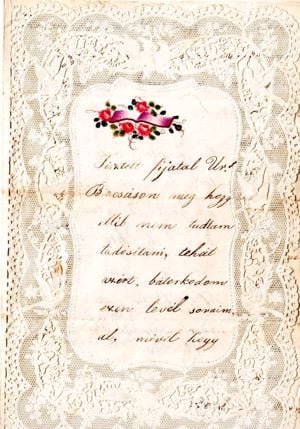 Tisztelt fijatal Úr!
Bocsáson meg hogy
Mit nem tudtam
tudositani, tehát
azért, bátorkodom
ezen levél soraim,
al, mivel hogy